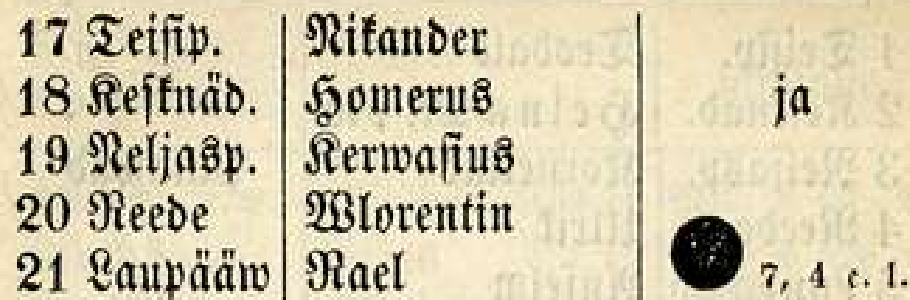 17 Teisip. Nikander
18 Keſknäd. Homerus ja
19 Neljasp. Kerwaſius
20 Reede Wlorentin
21 Laupääw Rael 7, 4 e. l.